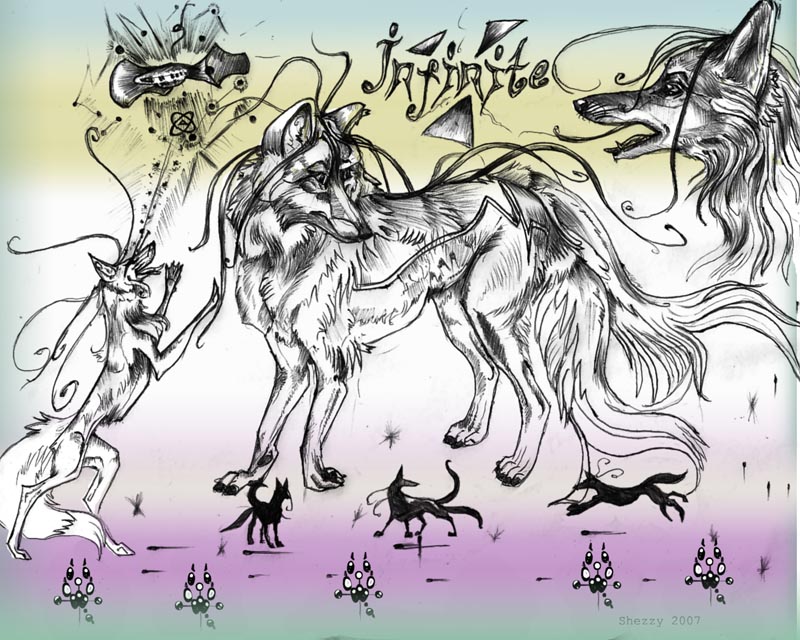 infinite
Shezzy 2007